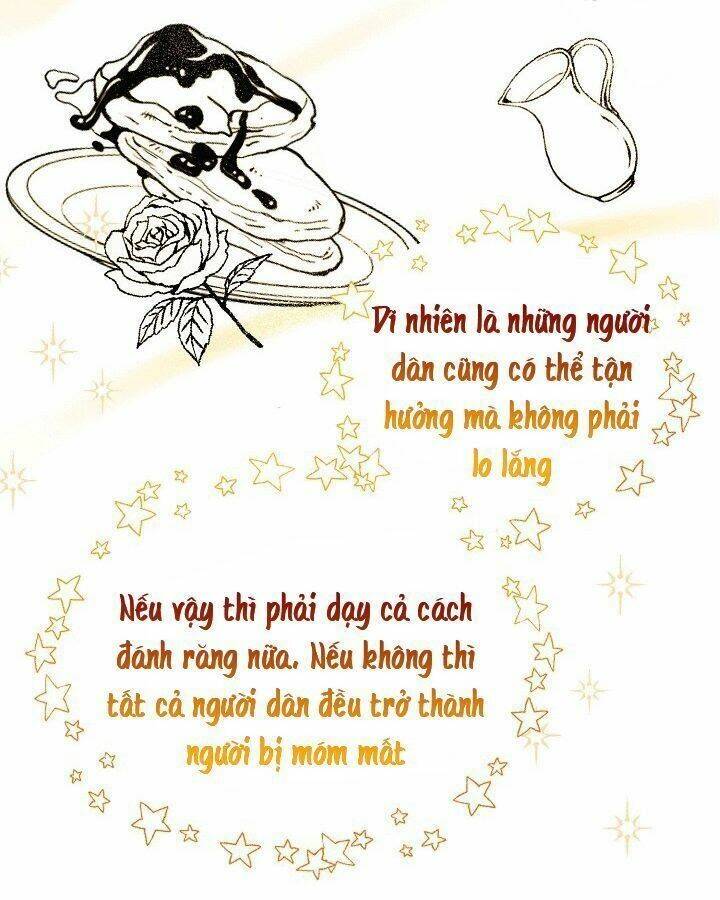 Dĩ nhiên là những người
dân cũng có thể tận
hưởng mà không phải
lo lắng
Nếu vậy thì phải dạy cả cách
đánh răng nữa. Nếu không thì
tất cả người dân đều trở thành
người bị móm mất